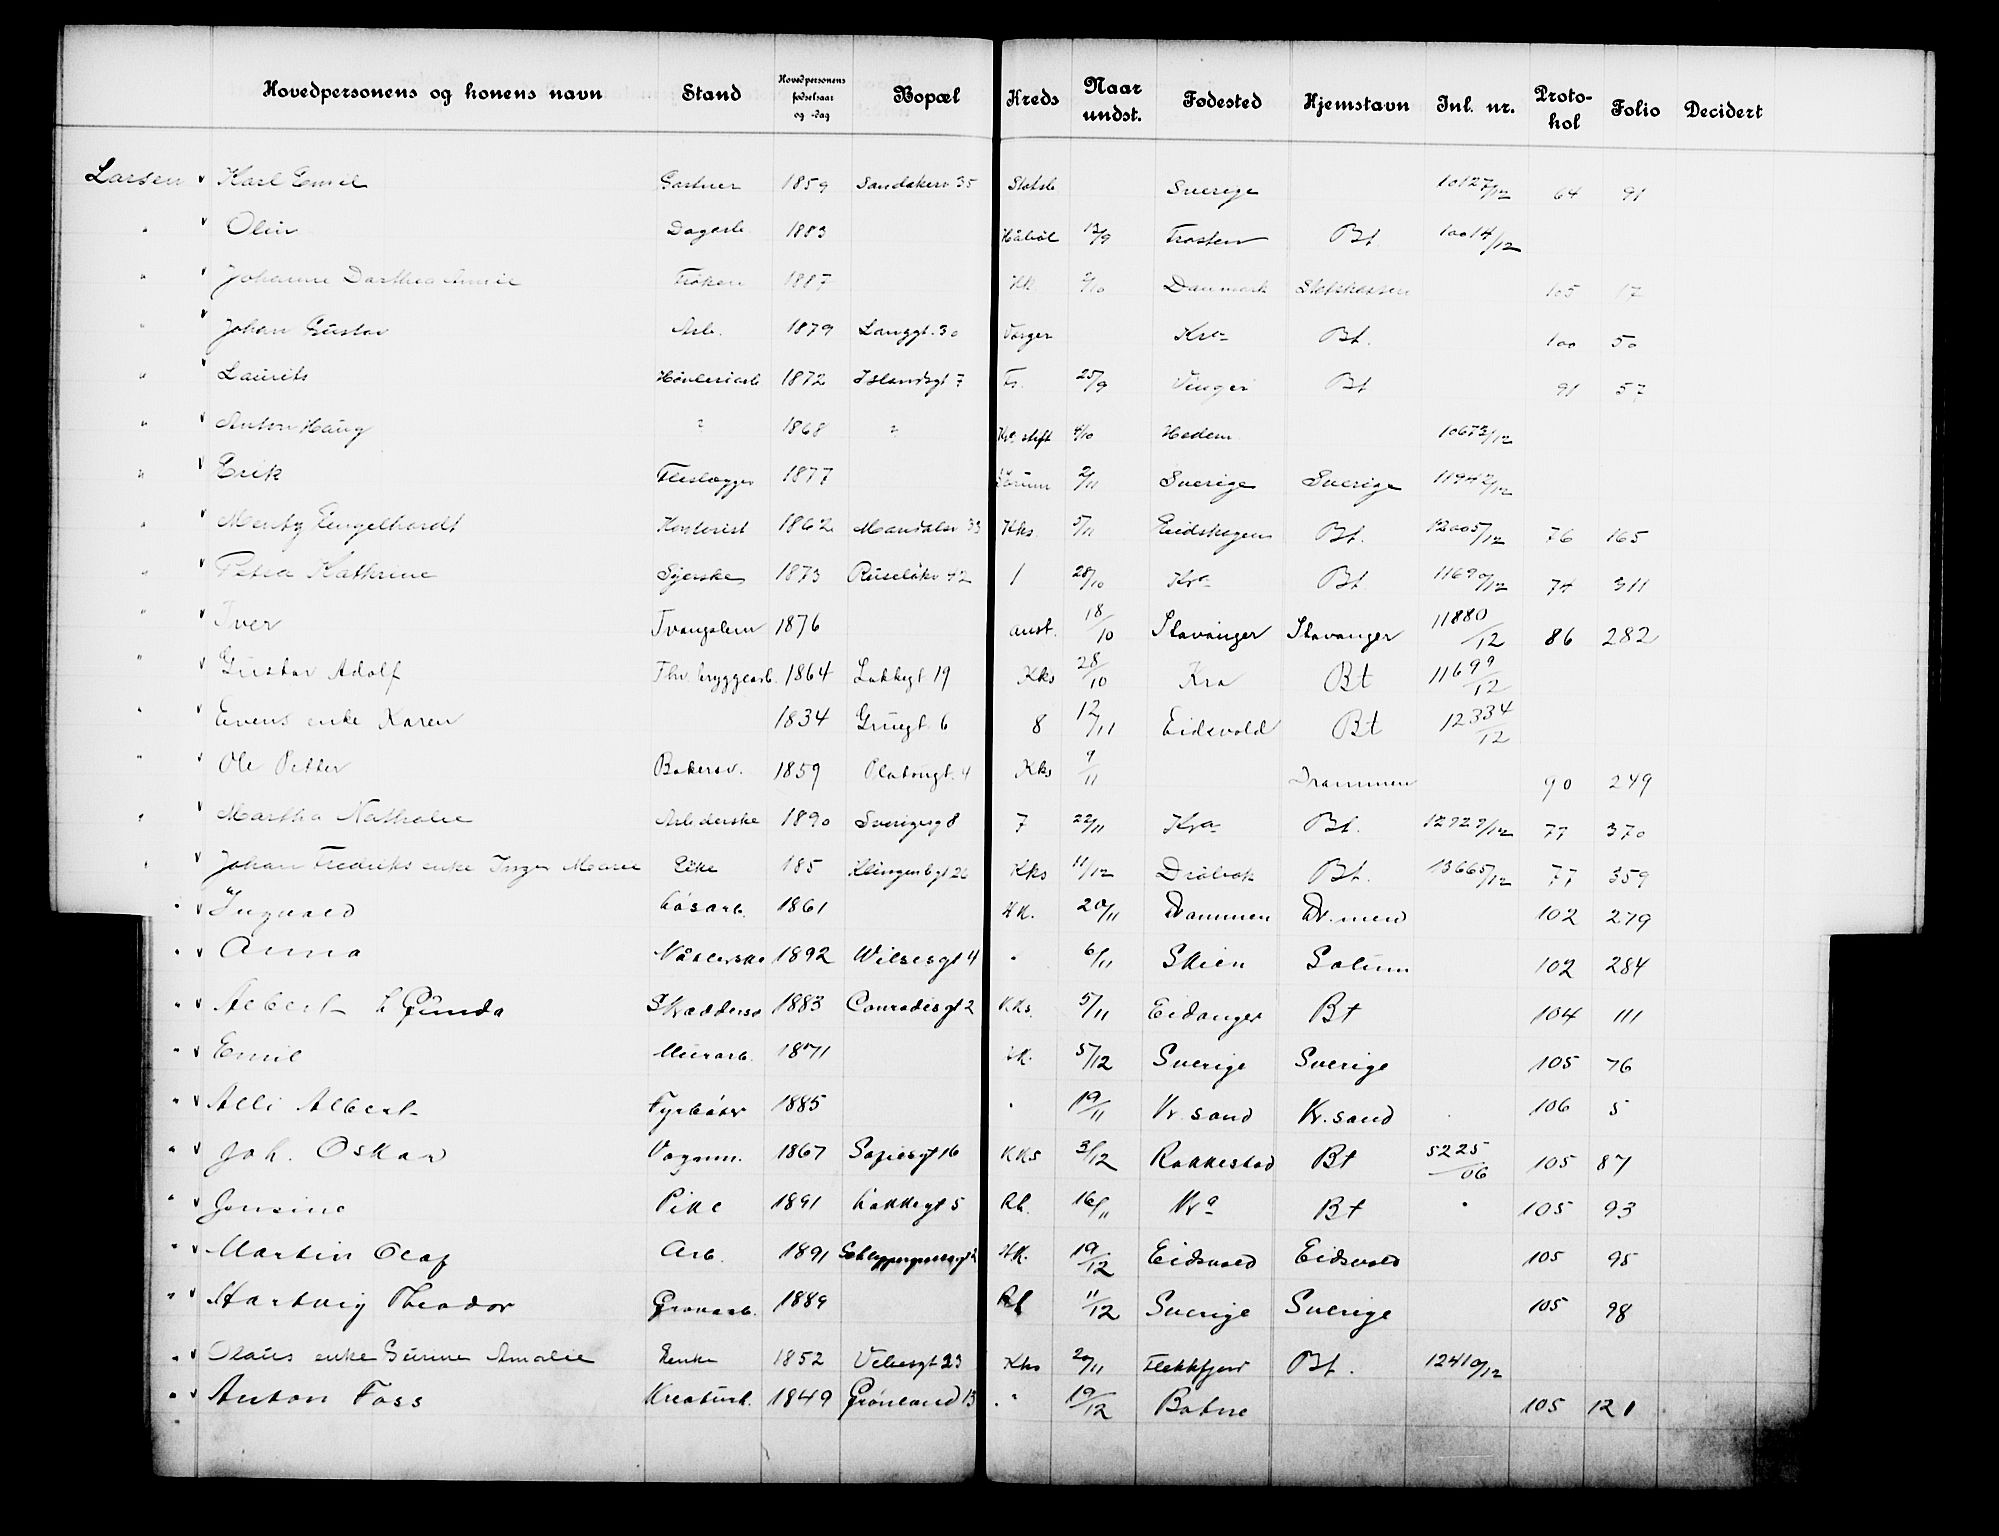 Hovedpersonens og konens navn Stand Hovedpersonens fødselsaar og -dag Bopæl Kreds Naar undst. Fødested Hjemstavn Inl. nr. Proto-kol Folio Decidert
Larsen v Karl Emil Gartner 1859 Sandakerv 35 Slotsb Sverige 10127/12 64 91
" v Olin Dagarb 1883 12/9 Trosten Bt 10014/12
" v Johanne Darthea Amilie Frøken 1887 Kk 2/10 Danmark Statskassen 105 17
" v Johan Gustav Arb. 1879 Langgt. 30 Vorger Kra Bt. 100 50
" v Laurits Høvleriarb 1872 Islandsgt 7 Fr. 25/9 Vinger Bt 91 57
" v Anton Haug " 1868 " Kra stift 4/10 Hedem 10673/12
" v Erik Fliselægger 1877 Sørum 2/11 Sverige Sverige 11942/12
" v Mentz Engelhardt Kontorist 1862 Mandalsv 33 Kks. 5/11 Eidskogen Bt. 12005/12 76 165
" v Petra Kathrine Syerske 1873 Ruseløkv 42 1 28/10 Kra Bt. 11690/12 74 311
" v Iver Tvangslem 1876 anst. 18/10 Stavanger Stavanger 11880/12 86 282
" v Gustav Adolf Thv. bryggearb. 1864 Lakkegt 19 Kks 28/10 Kra Bt 11699/12
" v Evens enke Karen 1834 Gruegt. 6 8 12/11 Eidsvold Bt 12334/12
" v Ole Petter Bakersv. 1859 Olafsngt. 4 Kks 9/11 Drammen 90 249
" v Martha Nathalie Arbederske 1890 Sverigesg 8 7 22/11 Kra Bt. 12929/12 77 370
" v Johan Fredriks enke Inger Marie Enke 185 Klingenbgt 26 Kks 11/12 Drøbak Bt. 13665/12 77 359
" v Ingvald Løsarb. 1861 KK. 20/11 Drammen Dr.men 102 279
" v Anna Nåtlerske 1892 Wilsesgt 4 " 6/11 Skien Solum 102 284
" v Albert h Gunda Skræddersv 1883 Conradisgt 2 KKs. 5/11 Eidanger Bt 104 111
" v Emil Murarb. 1871 KK. 5/12 Sverige Sverige 105 76
" v Alli Albert Fyrbøter 1885 " 19/11 Kr.sand Kr.sand 106 5
" v Joh. Oskar Vognm. 1867 Sofiesgt 16 KKs 3/12 Rakkestad Bt 5225/06 105 87
" v Jensine Pike 1891 Lakkegt 5 Rb. 16/11 Kra Bt " 105 93
" v Martin Olaf Arb. 1891 KK. 19/12 Eidsvold Eidsvold 105 95
" v Hartvig Theodor Grovarb. 1889 Rb 11/12 Sverige Sverige 105 98
" v Olaus enke Gunne Amalie Enke 1852 Vibesgt 23 Kks 20/11 Flekkfjord Bt. 12410/12
" v Anton Foss Kreaturh. 1849 Grønland 13 " 19/12 Botne 105 121